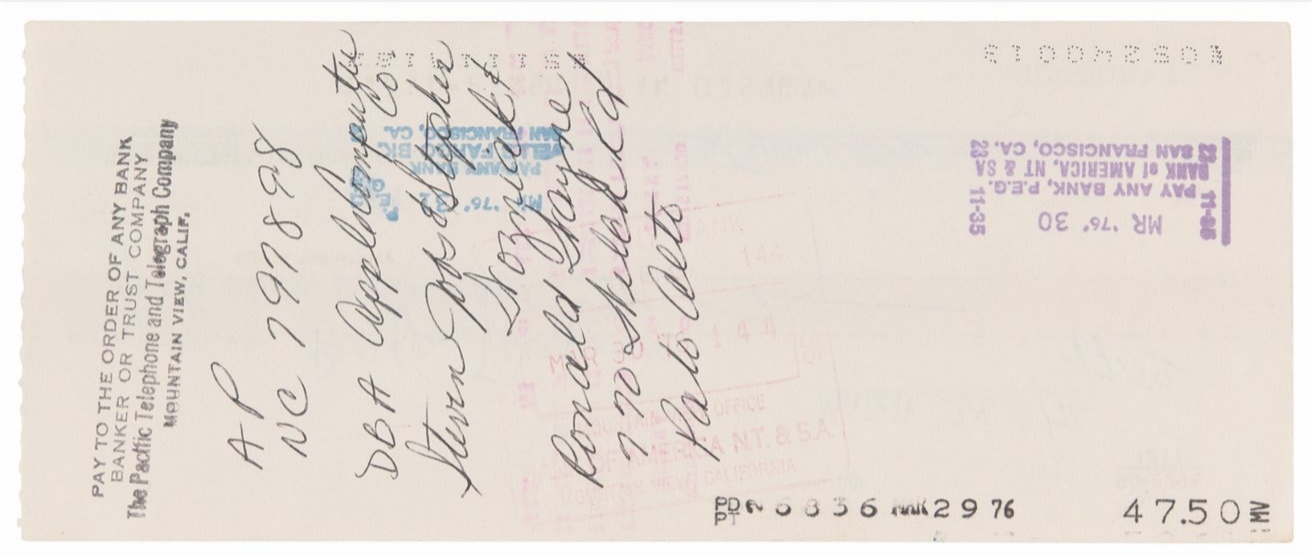 PAY TO THE ORDER OF ANY BANK
BANKER OR TRUST COMPANY
The Pacific Telephone and Telegraph Company
MOUNTAIN VIEW, CALIF.
A P
NC 797898
DBA Apple Computer Co.
Steven Jobs & Stephen
Wozniak &
Ronald Wayne
770 Welch Rd
Palo Alto
MR '76 31
PAY ANY BANK
WELLS FARGO BK
SAN FRANCISCO, CA.
MAR 30 76 144
MOUNTAIN VIEW OFFICE
BANK OF AMERICA N.T. & S.A.
MOUNTAIN VIEW, CALIFORNIA
11-35
MR '76 30
PAY ANY BANK, P.E.G.
11-35
BANK of AMERICA, NT & SA
23 SAN FRANCISCO, CA. 23
PD
PT 6836 MAR 29 76 47.50 MV